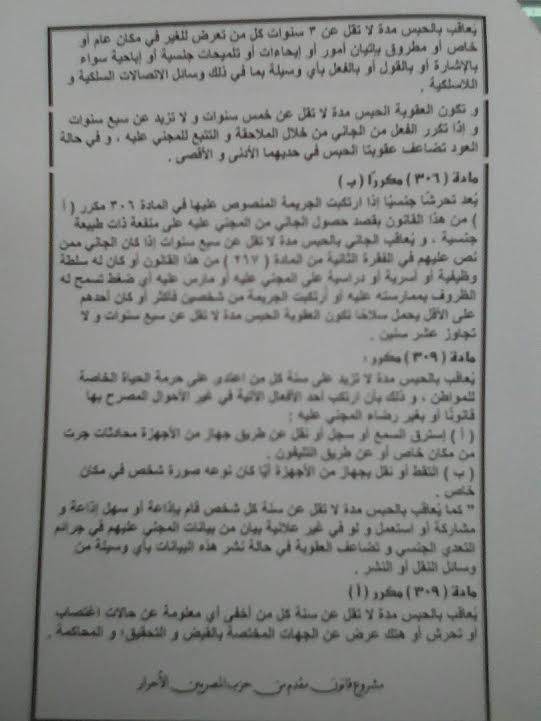 يُعاقب بالحبس مدة لا تقل عن ٣ سنوات كل من تعرض للغير في مكان عام أو
خاص أو مطروق بإتيان أمور أو إيحاءات أو تلميحات جنسية أو إباحية سواء
بالإشارة أو بالقول أو بالفعل بأي وسيلة بما في ذلك وسائل الاتصالات السلكية و
اللاسلكية .
و تكون العقوبة الحبس مدة لا تقل عن خمس سنوات و لا تزيد عن سبع سنوات
و إذا تكرر الفعل من الجاني من خلال الملاحقة و التتبع للمجني عليه ، و في حالة
العود تضاعف عقوبتا الحبس في حديهما الأدنى و الأقصى .
مادة ( ٣٠٦ ) مكررًا ( ب )
يُعد تحرشًا جنسيًا إذا ارتكبت الجريمة المنصوص عليها في المادة ٣٠٦ مكرر ( أ
) من هذا القانون بقصد حصول الجاني من المجني عليه على منفعة ذات طبيعة
جنسية ، و يُعاقب الجاني بالحبس مدة لا تقل عن سبع سنوات إذا كان الجاني ممن
نص عليهم في الفقرة الثانية من المادة ( ٢٦٧ ) من هذا القانون أو كان له سلطة
وظيفية أو أسرية أو دراسية على المجني عليه أو مارس عليه أي ضغط تسمح له
الظروف بممارسته عليه أو أرتكبت الجريمة من شخصين فأكثر أو كان أحدهم
على الأقل يحمل سلاحًا تكون العقوبة الحبس مدة لا تقل عن سبع سنوات و لا
تجاوز عشر سنين .
مادة ( ٣٠٩ ) مكرر :
يُعاقب بالحبس مدة لا تزيد على سنة كل من اعتدى على حرمة الحياة الخاصة
للمواطن ، و ذلك بأن ارتكب أحد الأفعال الآتية في غير الأحوال المصرح بها
قانونًا أو بغير رضاء المجني عليه :
( أ ) إسترق السمع أو سجل أو نقل عن طريق جهاز من الأجهزة محادثات جرت
من مكان خاص أو عن طريق التليفون .
( ب ) التقط أو نقل بجهاز من الأجهزة أيًا كان نوعه صورة شخص في مكان
خاص .
" كما يُعاقب بالحبس مدة لا تقل عن سنة كل شخص قام بإذاعة أو سهل إذاعة و
مشاركة أو استعمل و لو في غير علانية بيان من بيانات المجني عليهم في جرائم
التعدي الجنسي و تضاعف العقوبة في حالة نشر هذه البيانات بأي وسيلة من
وسائل النقل أو النشر .
مادة ( ٣٠٩ ) مكررا ( أ )
يُعاقب بالحبس مدة لا تقل عن سنة كل من أخفى أي معلومة عن حالات اغتصاب
أو تحرش أو هتك عرض عن الجهات المختصة بالقبض و التحقيق؛ و المحاكمة .
مشروع قانون مقدم من حزب المصريين الأحرار